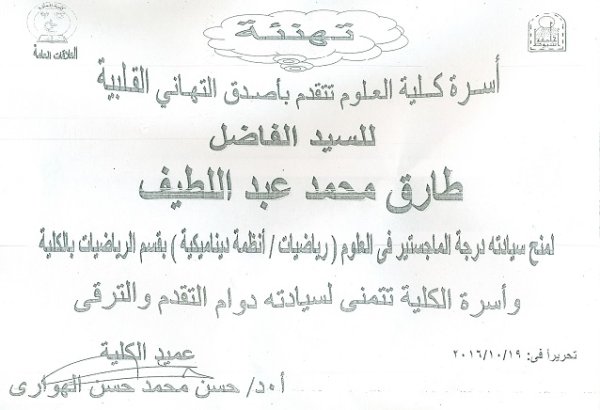 تهنئة
العلاقات العامة
أسرة كلية العلوم تتقدم بأصدق التهاني القلبية
للسيد الفاضل
طارق محمد عبد اللطيف
لمنح سيادته درجة الماجستير فى العلوم ( رياضيات / أنظمة ديناميكية ) بقسم الرياضيات بالكلية
وأسرة الكلية تتمنى لسيادته دوام التقدم والترقى
تحريراً فى: ٢٠١٦/١٠/١٩
عميد الكلية
أ.د/ حسن محمد حسن الهوارى